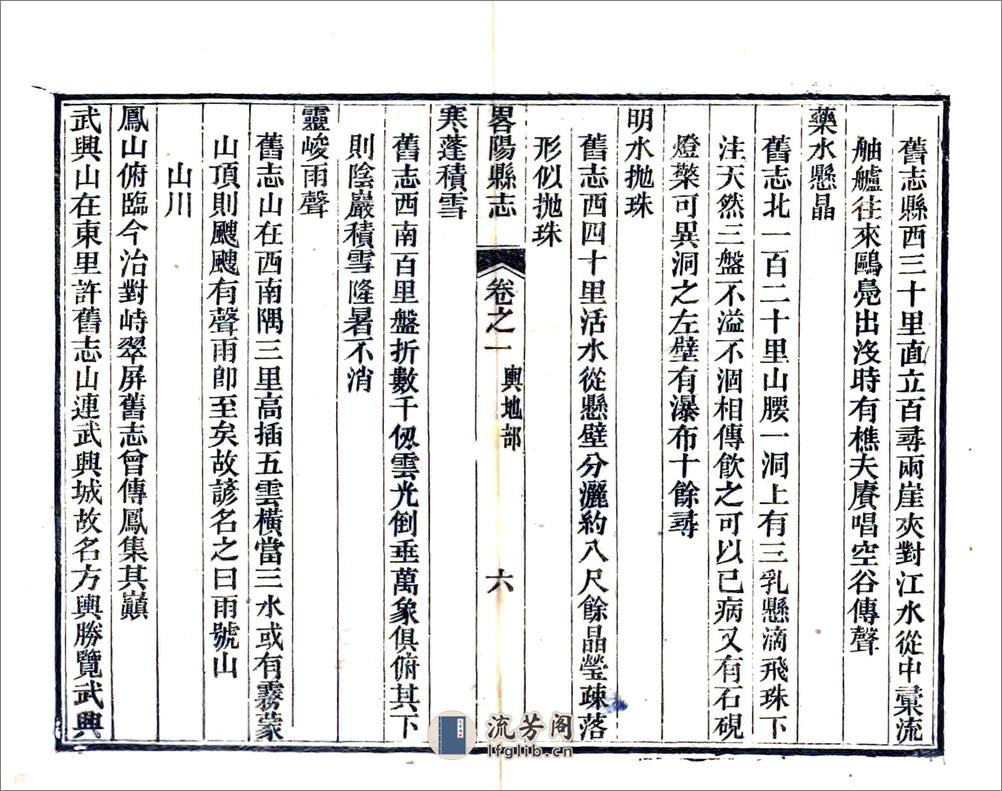 舊志縣西三十里直立百尋兩崖夾對江水從中彙流
舳艫往來鷗鳧出沒時有樵夫賡唱空谷傳聲
藥水懸晶
舊志北一百二十里山腰一洞上有三乳懸滴飛珠下
注天然三盤不溢不涸相傳飲之可以已病又有石硯
燈檠可異洞之左壁有瀑布十餘尋
明水拋珠
舊志西四十里活水從懸壁分灑約八尺餘晶瑩疎落
形似拋珠
畧陽縣志
卷之一
輿地部
六
寒蓬積雪
舊志西南百里盤折數千仞雲光倒垂萬象俱俯其下
則陰巖積雪隆暑不消
靈峻雨聲
舊志山在西南隅三里高插五雲橫當三水或有霧蒙
山頂則颼颼有聲雨卽至矣故諺名之曰雨號山
山川
鳳山俯臨今治對峙翠屏舊志曾傳鳳集其巔
武興山在東里許舊志山連武興城故名方輿勝覽武興
流芳阁
lfglib.cn